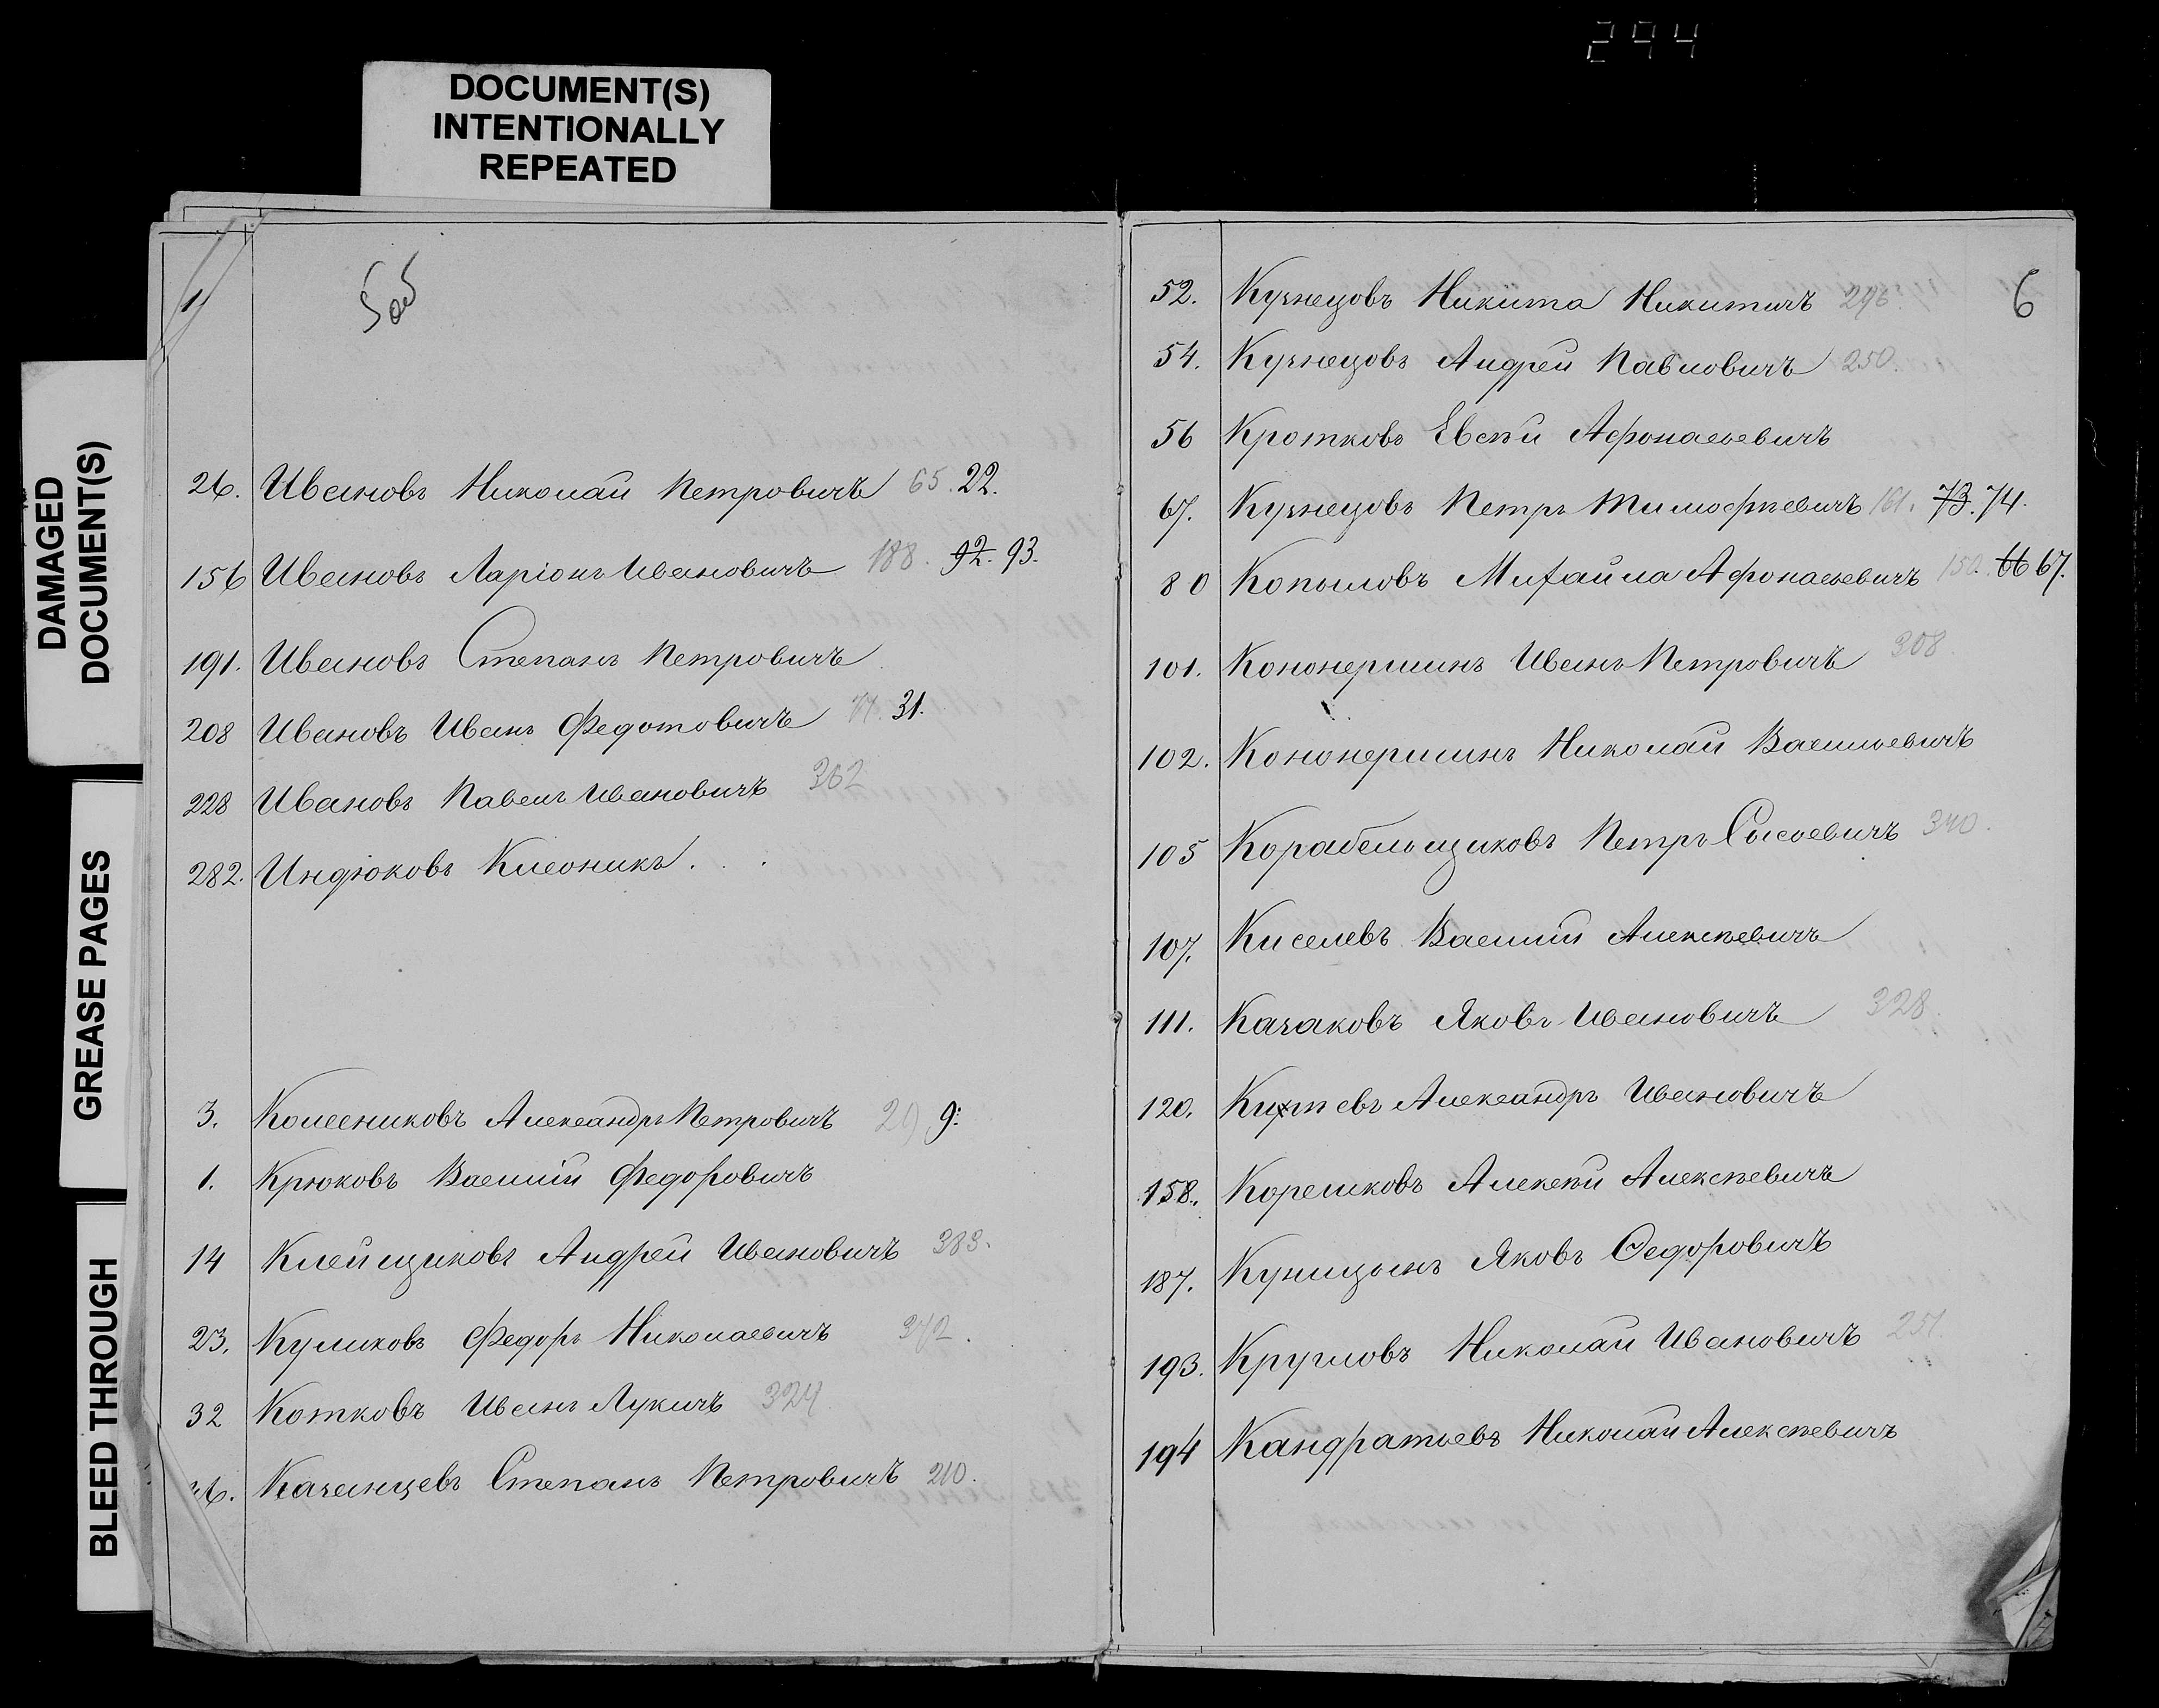 294
DOCUMENT(S)
INTENTIONALLY
REPEATED
DAMAGED
DOCUMENT(S)
GREASE PAGES
BLEED THROUGH
5об
26. Ивановъ Николай Петровичъ 65. 22.
156 Ивановъ Ларіонъ Ивановичъ 188. 92. 93.
191. Ивановъ Степанъ Петровичъ
208 Ивановъ Иванъ Федотовичъ 31.
228 Ивановъ Павелъ Ивановичъ 362
282. Индюковъ Клеоникъ.
3. Колесниковъ Александръ Петровичъ 29 9:
1. Крюковъ Василій Федоровичъ
14 Клейщиковъ Андрей Ивановичъ 383.
23. Куликовъ Федоръ Николаевичъ 342.
32 Котковъ Иванъ Лукичъ 324
Казанцевъ Степанъ Петровичъ 210.
6
52. Кузнецовъ Никита Никитичъ 296.
54. Кузнецовъ Андрей Павловичъ 250.
56 Кротковъ Евсѣй Афонасьевичъ
67. Кузнецовъ Петръ Тимофѣевичъ 161. 73. 74.
80 Копыловъ Михайла Афонасьевичъ 150. 66 67.
101. Кононершинъ Иванъ Петровичъ 308.
102. Кононершинъ Николай Васильевичъ
105 Корабельщиковъ Петръ Сысоевичъ 340.
107. Киселевъ Василій Алексѣевичъ
111. Казаковъ Яковъ Ивановичъ 328
120. Александръ Ивановичъ
158. Корешковъ Алексѣй Алексѣевичъ
187. Куницынъ Яковъ Ѳедоровичъ
193. Кругловъ Николай Ивановичъ 251.
194 Кандратьевъ Николай Алексѣевичъ